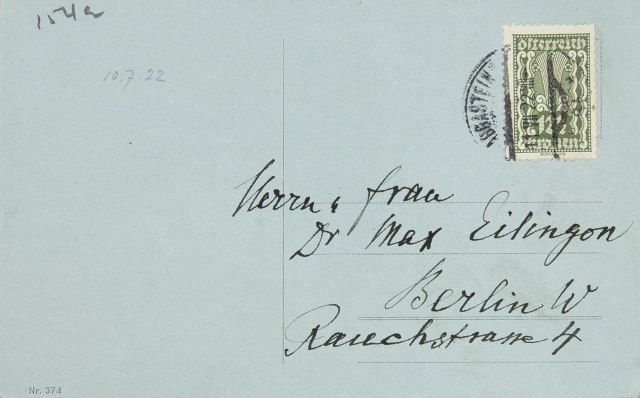 154a
10.7.22
Österreich
12½
Kronen
Herrn u. Frau
Dr Max Eilingon
Berlin W
Rauchstrasse 4
Nr. 374